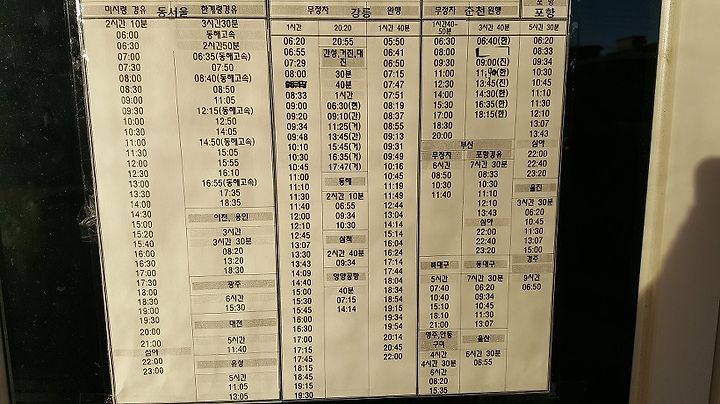 미시령 경유 동서울 한계령경유
2시간 10분 3시간30분
06:00 동해고속
06:30 2시간50분
07:00 06:35(동해고속)
07:30 07:50
08:00 08:40(동해고속)
08:30 08:50
09:00 11:05
09:30 12:15(동해고속)
10:00 12:50
10:30 14:05
11:00 14:50(동해고속)
11:30 15:05
12:00 15:55
12:30 16:10
13:00 16:55(동해고속)
13:30 17:35
14:00 18:35
14:30 이천, 용인
15:00
15:20 3시간
15:40 3시간 30분
16:00 08:20
16:30 13:20
17:00 18:30
17:30 광주
18:00 6시간
18:30 15:30
19:00
19:30 대전
20:00
21:00 5시간
심야 11:40
22:00 유성
23:00 5시간
11:05
13:05
무정차 강릉 완행
1시간 20:20 1시간 40분
06:20 20:55 05:50
06:55 간성,거진,대진 06:41
07:29 06:50
08:00 30분 07:15
40분 07:47
08:33 1시간 08:00
09:00 06:30(현) 08:19
09:20 09:10(간) 08:37
09:34 11:25(거) 08:55
09:48 13:45(간) 09:13
10:10 15:45(현) 09:31
10:30 16:35(거) 09:49
10:45 17:47(거) 10:16
11:00 동해 10:45
11:10 11:11
11:30 2시간 10분 11:49
11:40 06:55 12:04
12:00 09:34 12:44
12:10 10:30 13:14
12:45 삼척 14:04
13:07 14:24
13:30 2시간 40분 14:44
13:43 09:34 17:14
14:09 양양공항 17:44
14:40 18:04
15:00 40분 18:20
15:30 07:15 18:34
15:45 14:14 18:54
16:00 19:14
16:30 19:34
17:00 19:54
17:15 20:14
17:45 20:45
18:15 22:00
18:45
19:10
19:30
무정차 춘천 완행
1시간40~50분 3시간 40분
06:30 06:40(완)
08:00
09:30 09:00(진)
11:00
12:30 13:45(진)
14:00 14:30(완)
15:30 16:35(완)
17:00 18:15(완)
18:30
20:00
부산
무정차 포항경유
6시간 7시간 30분
08:50 08:33
10:30 10:30
11:10
12:10
13:43
심야
22:00
22:40
23:20
북대구 동대구
5시간 7시간 30분
07:40 06:20
10:40 09:34
15:10 10:45
18:10 11:10
21:00 13:07
영주,안동 구미 울산
4시간 6시간 30분
4시간 30분 06:55
6시간
08:20
15:35
포항
5시간 30분
06:20
08:33
09:34
10:30
10:45
11:10
11:30
12:10
13:07
13:43
심야
22:00
22:40
23:20
울진
3시간 30분
06:20
09:34
10:45
11:30
13:07
15:00
경주
9시간
06:50